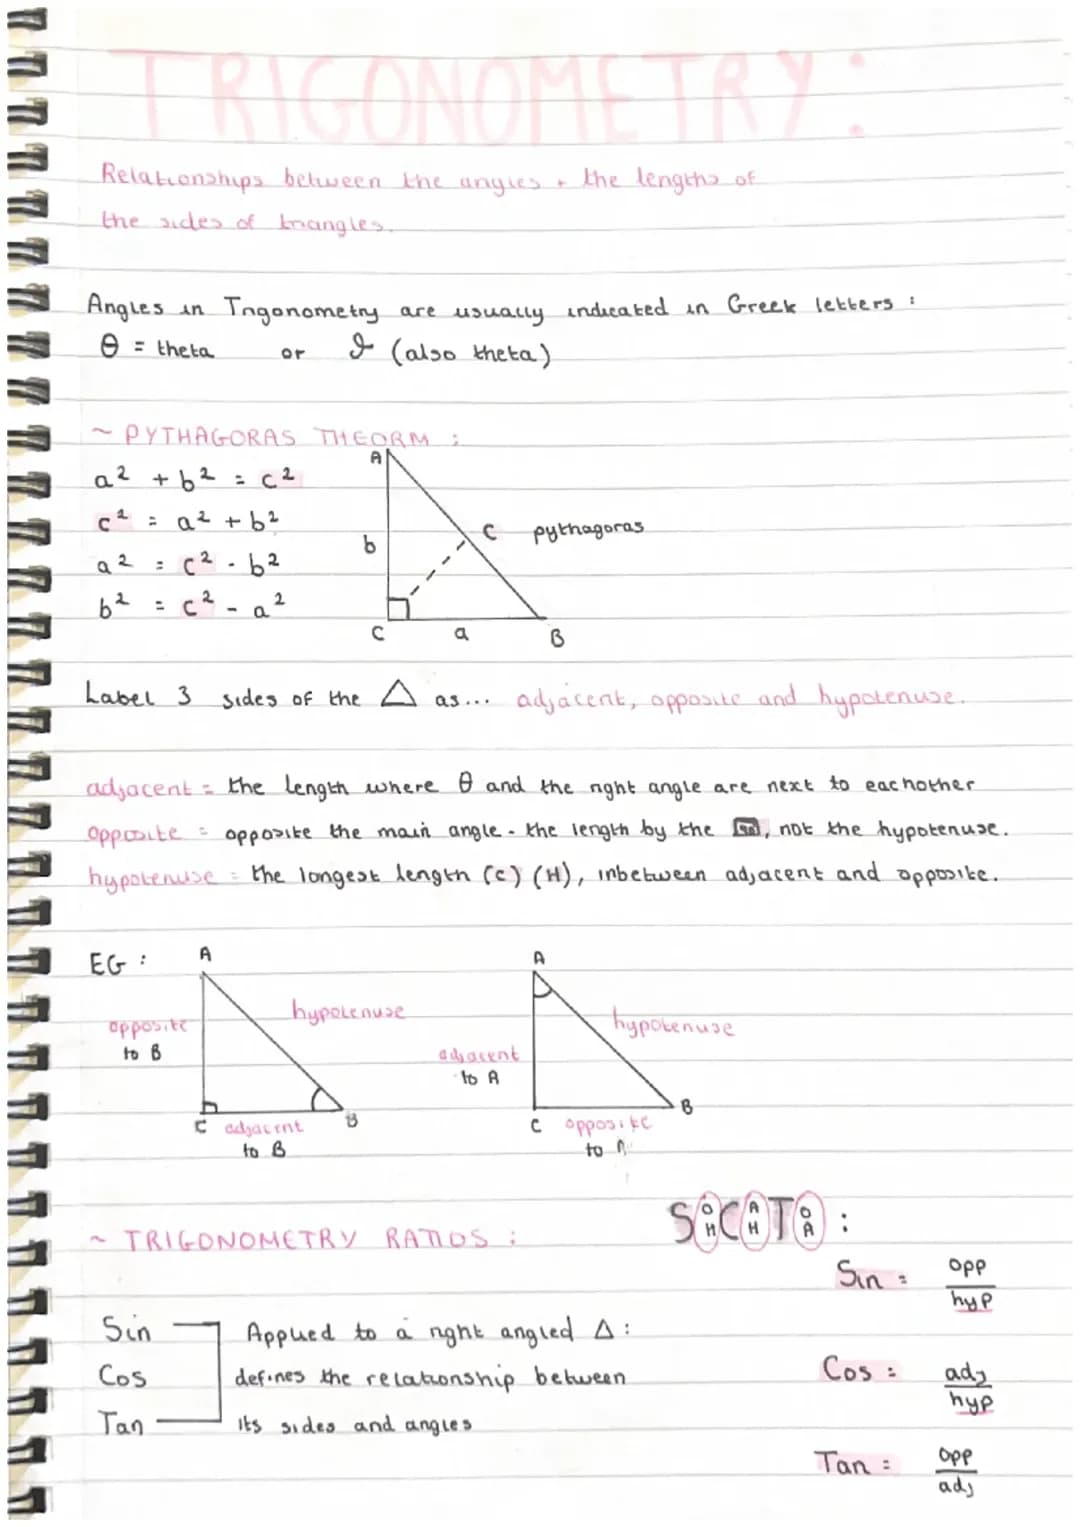 TRIGONOMETRY:
Relationships between the angles + the lengths of
the sides of triangles.
Angles in Trigonometry are usually indicated in Greek letters :
θ = theta or ϑ (also theta)
~ PYTHAGORAS THEORM :
a² + b² = c²
c² = a² + b²
a² = c² - b²
b² = c² - a²
A
b
c pythagoras
C a B
Label 3 sides of the △ as... adjacent, opposite and hypotenuse.
adjacent = the length where θ and the right angle are next to eachother
opposite = opposite the main angle - the length by the , not the hypotenuse.
hypotenuse = the longest length (c) (H), inbetween adjacent and opposite.
EG :
A
opposite
to B
hypotenuse
C adjacent B
to B
A
adjacent
to A
hypotenuse
C opposite B
to A
~ TRIGONOMETRY RATIOS :
S O H C A H T O A :
Sin = opp
hyp
Cos = adj
hyp
Tan = opp
adj
Sin Applied to a right angled △ :
Cos defines the relationship between
Tan its sides and angles